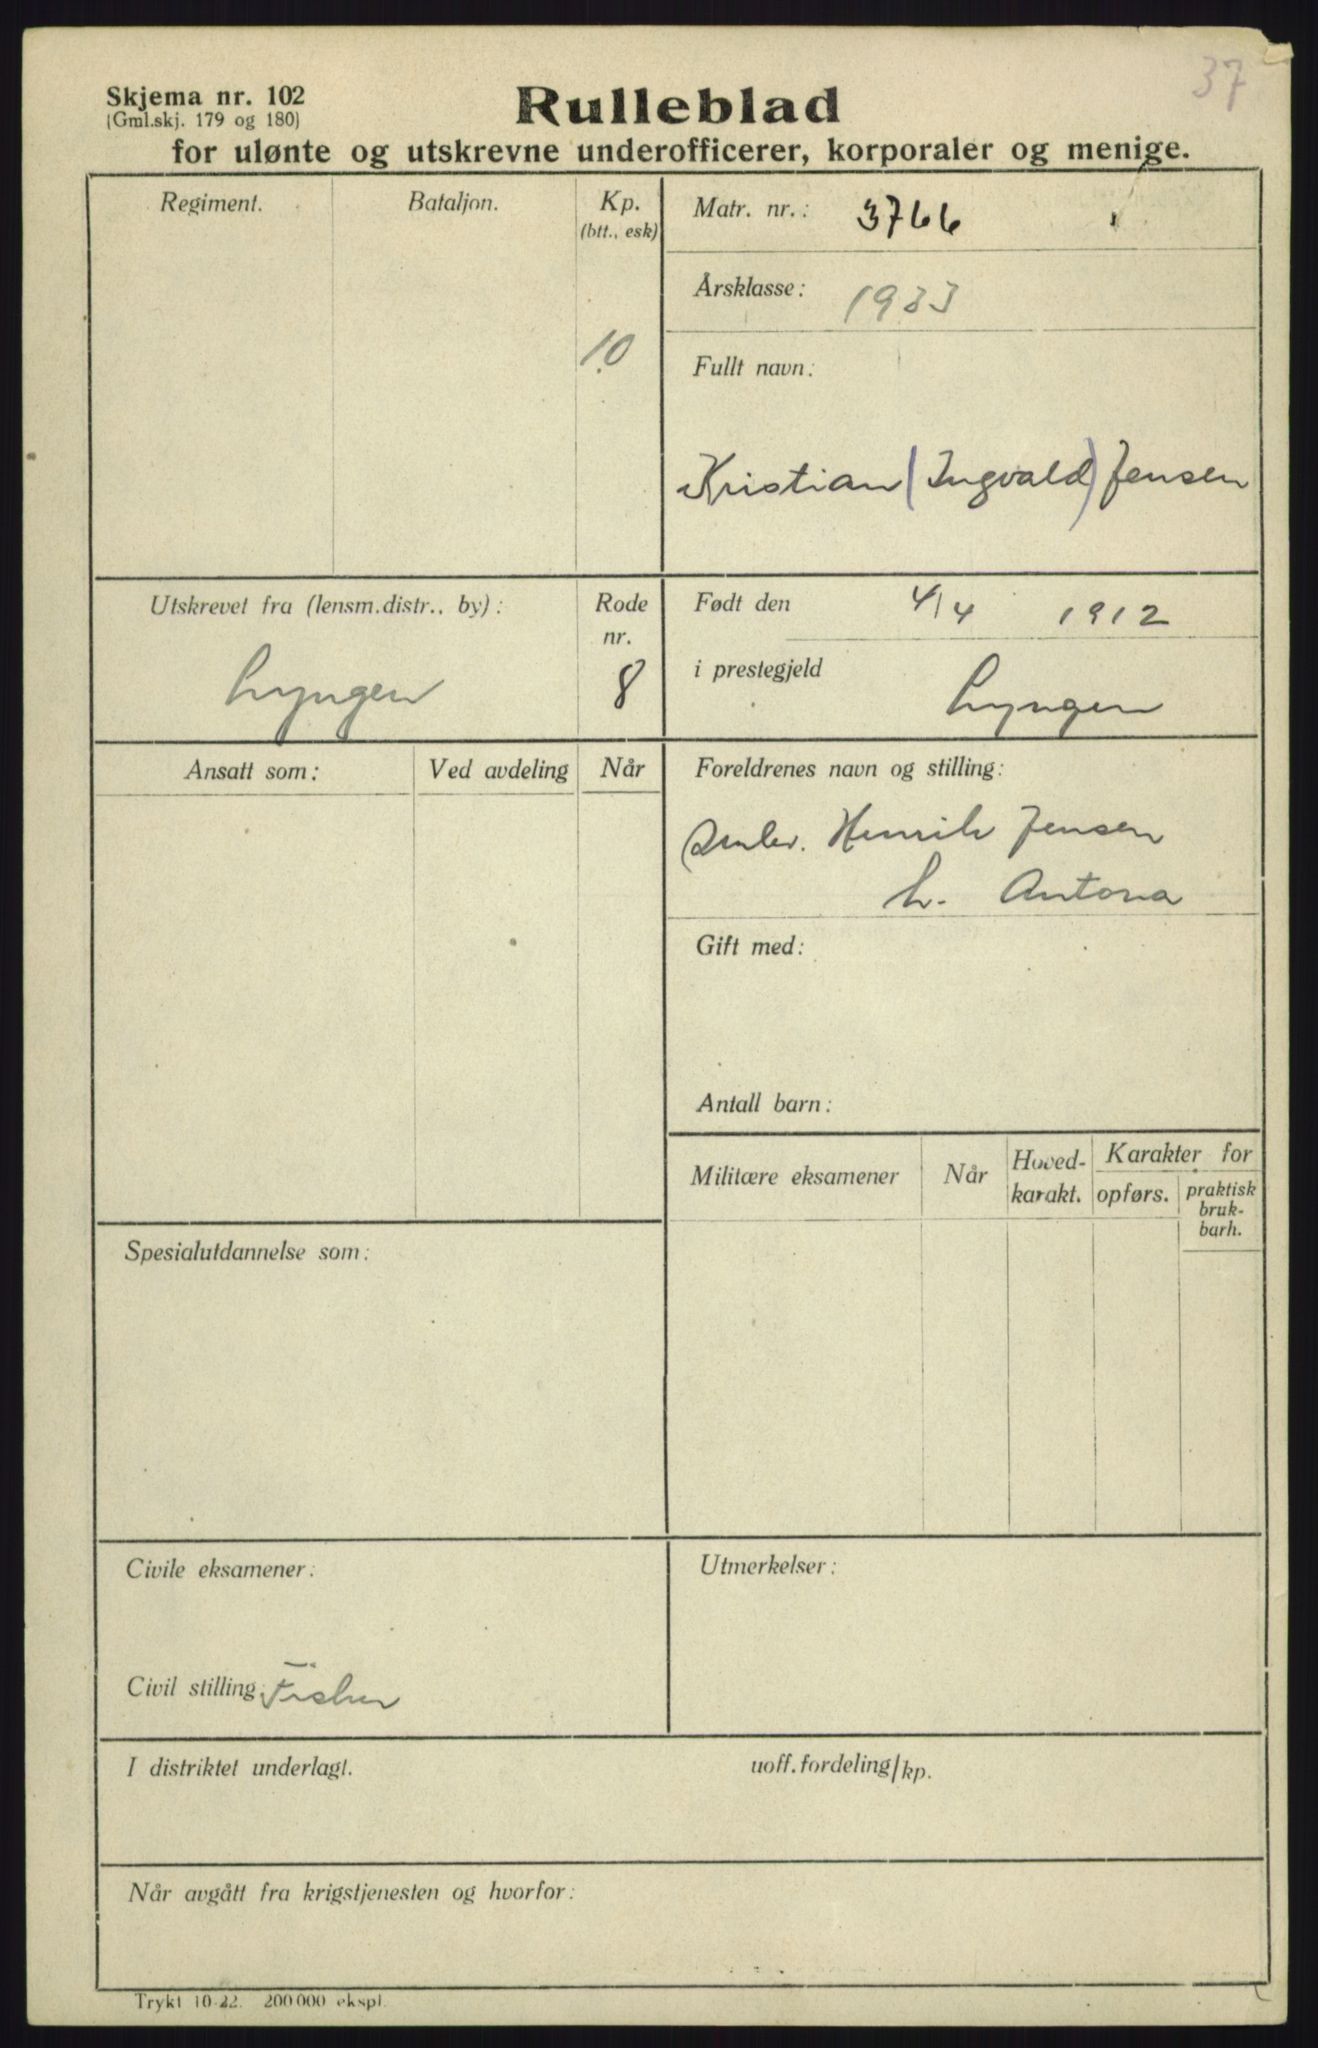 37
Skjema nr. 102
(Gml.skj. 179 og 180)
Rulleblad
for ulønte og utskrevne underofficerer, korporaler og menige.
Regiment.
Bataljon.
Kp.
(btt., esk)
10
Matr. nr.: 3766
Årsklasse: 1933
Fullt navn:
Kristian (Ingvald) Jensen
Utskrevet fra (lensm.distr., by):
Lyngen
Rode
nr.
8
Født den 4/4 1912
i prestegjeld
Lyngen
Ansatt som:
Ved avdeling
Når
Foreldrenes navn og stilling:
Henrik Jensen
h. Antona
Gift med:
Antall barn:
Militære eksamener
Når
Hoved-
karakt.
Karakter for
opførs.
praktisk
bruk-
barh.
Spesialutdannelse som:
Civile eksamener:
Civil stilling: Fisker
Utmerkelser:
I distriktet underlagt.
uoff.fordeling/kp.
Når avgått fra krigstjenesten og hvorfor:
Trykt 10-22. 200 000 ekspl.